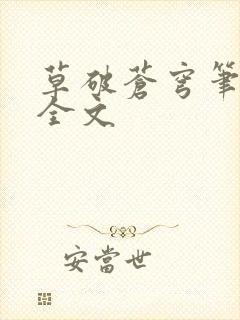 草破蒼穹筆
全文
安當世